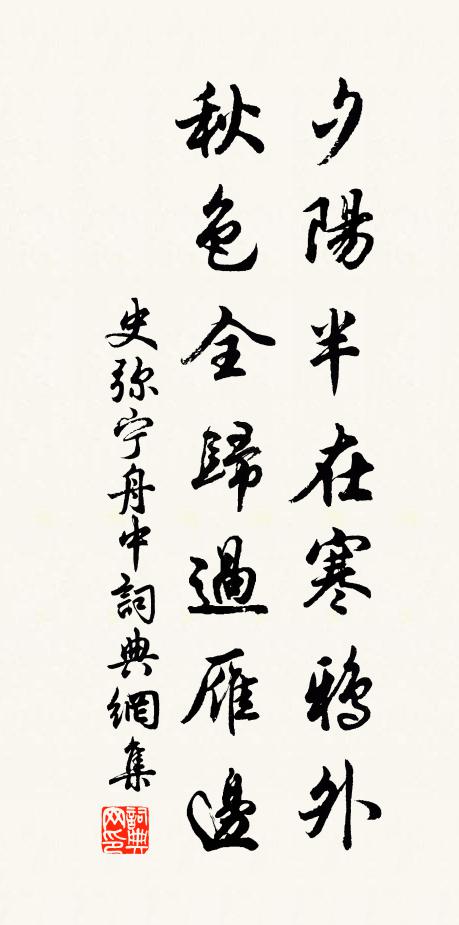 夕陽半在寒鴉外
秋色全歸過雁邊
史弥宁舟中詞典網集
詞典
网印